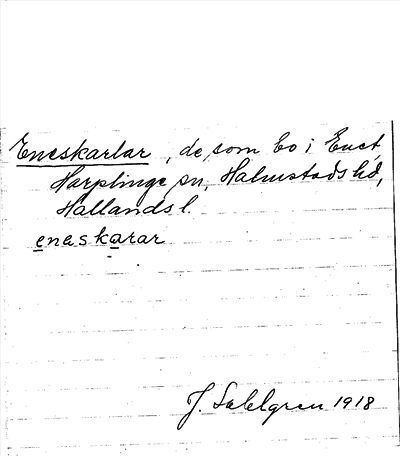 Eneskarlar, de, som bo i Enet,
Harplinge sn, Halmstads hd,
Hallands l.
eneskarar
J. Sahlgren 1918